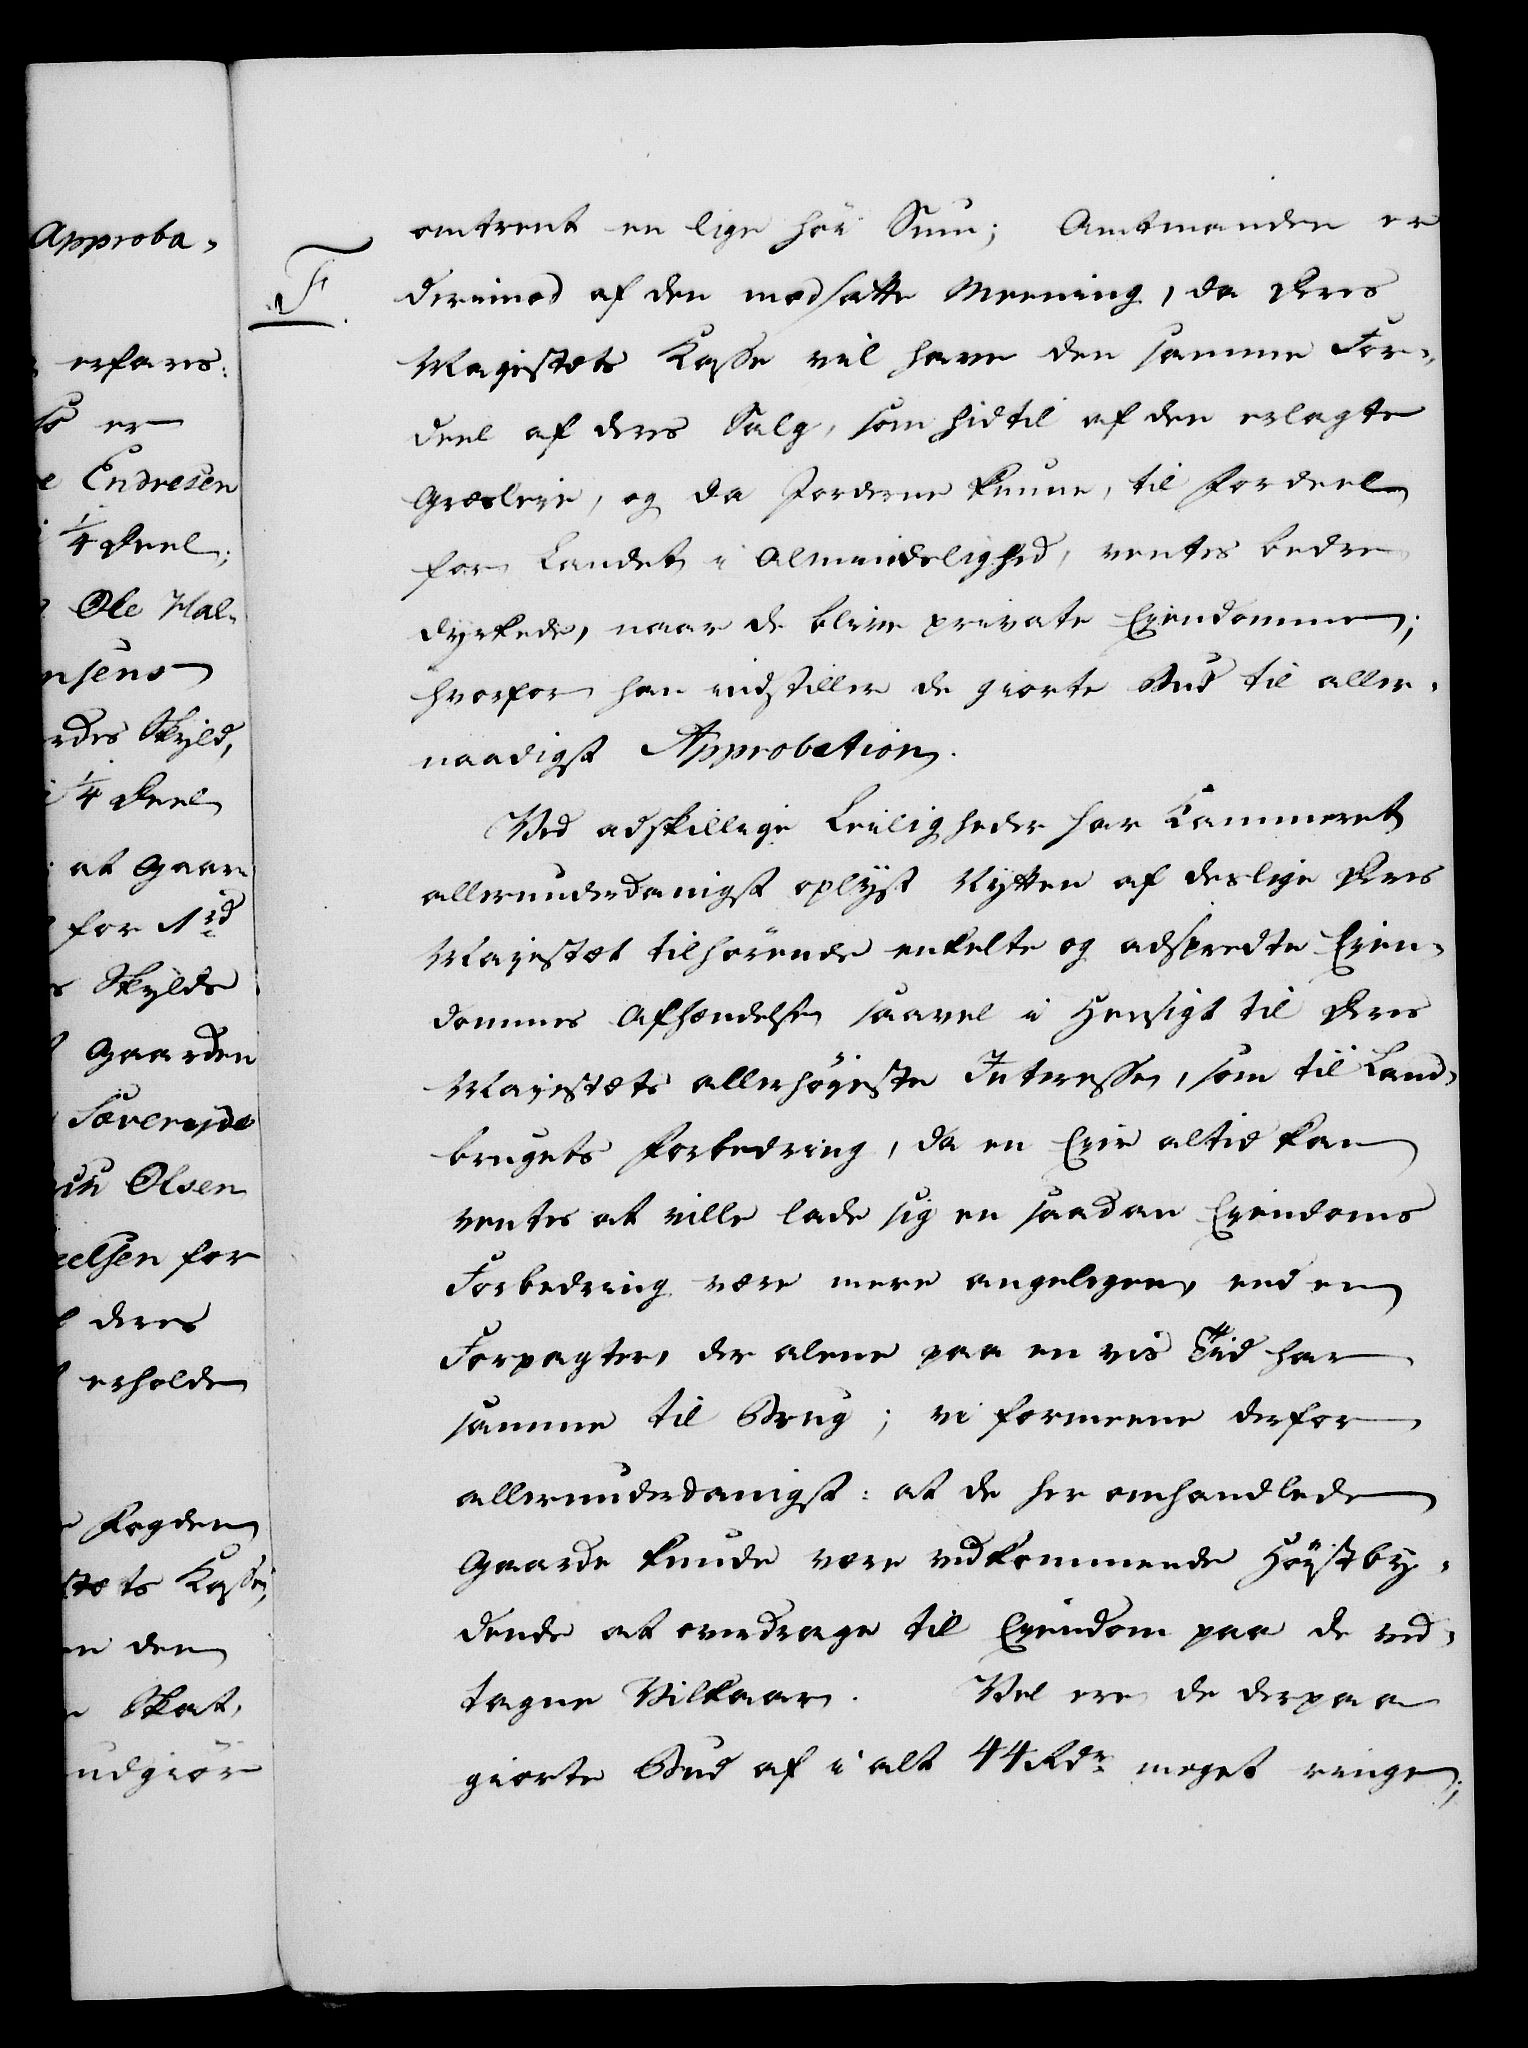 Approba-
erfares:
er
Endresen
1/4 Deel;
Ole Hal-
nsens
rdes Skyld,
1/4 Deel
at Gaar
for 1 rd
Skylds
Gaarden
Olsen
eelsen for
deres
erholde
Fogden
stets Kasse,
den
Skat,
udgiör
F.
omtrent en lige höi Sum; Amtmanden er
derimod af den modsatte Meening, da Deres
Majestets Kasse vil have den samme For-
deel af deres Salg, som hidtil af den erlagte
Græsleje, og da Jorderne kunne, til Fordeel
for Landet i Almindelighed, ventes bedre
dyrkede, naar de blive private Ejendomme;
hvorfor han indstiller de giorte Bud til aller-
naadigst Approbation.
Ved adskillige Leiligheder har Kammeret
allerunderdanigst oplyst Nytten af deslige Deres
Majestæt tilhörende enkelte og adspredte Ejen-
dommes Afhændelse saavel i Hensigt til Deres
Majestæts allerhöjeste Interesse, som til Land-
brugets Forbedring, da en Ejer altid kan
ventes at ville lade sig en saadan Ejendoms
Forbedring være mere angelegen, end en
Forpagter, der alene paa en vis Tid har
samme til Brug; vi formeene derfor
allerunderdanigst: at de her omhandlede
Gaarde kunde være vedkommende Höystby-
dende at overdrage til Ejendom paa de ved-
tagne Vilkaar. Vel ere de derpaa
giorte Bud af i alt 44 Rdr meget ringe;